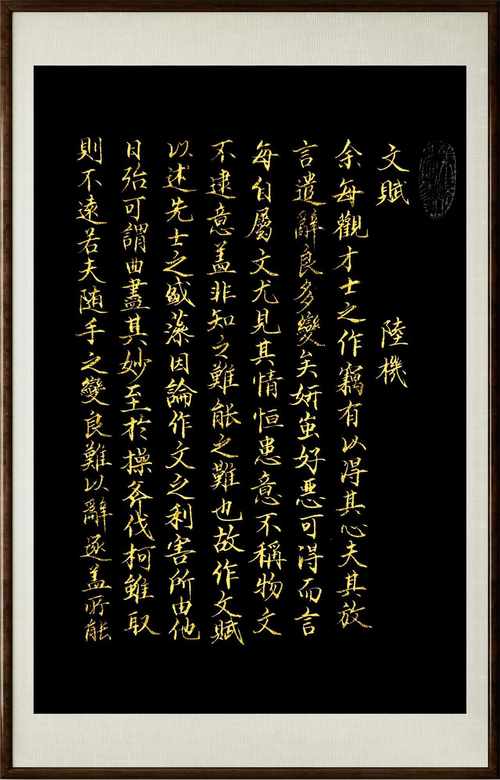 文賦 陸機
余每觀才士之作竊有以得其心夫其放
言遣辭良多變矣妍蚩好惡可得而言
每自屬文尤見其情恒患意不稱物文
不逮意盖非知之難能之難也故作文賦
以述先士之盛藻因論作文之利害所由他
日殆可謂曲盡其妙至於操斧伐柯雖取
則不遠若夫随手之變良難以辭逐盖所能